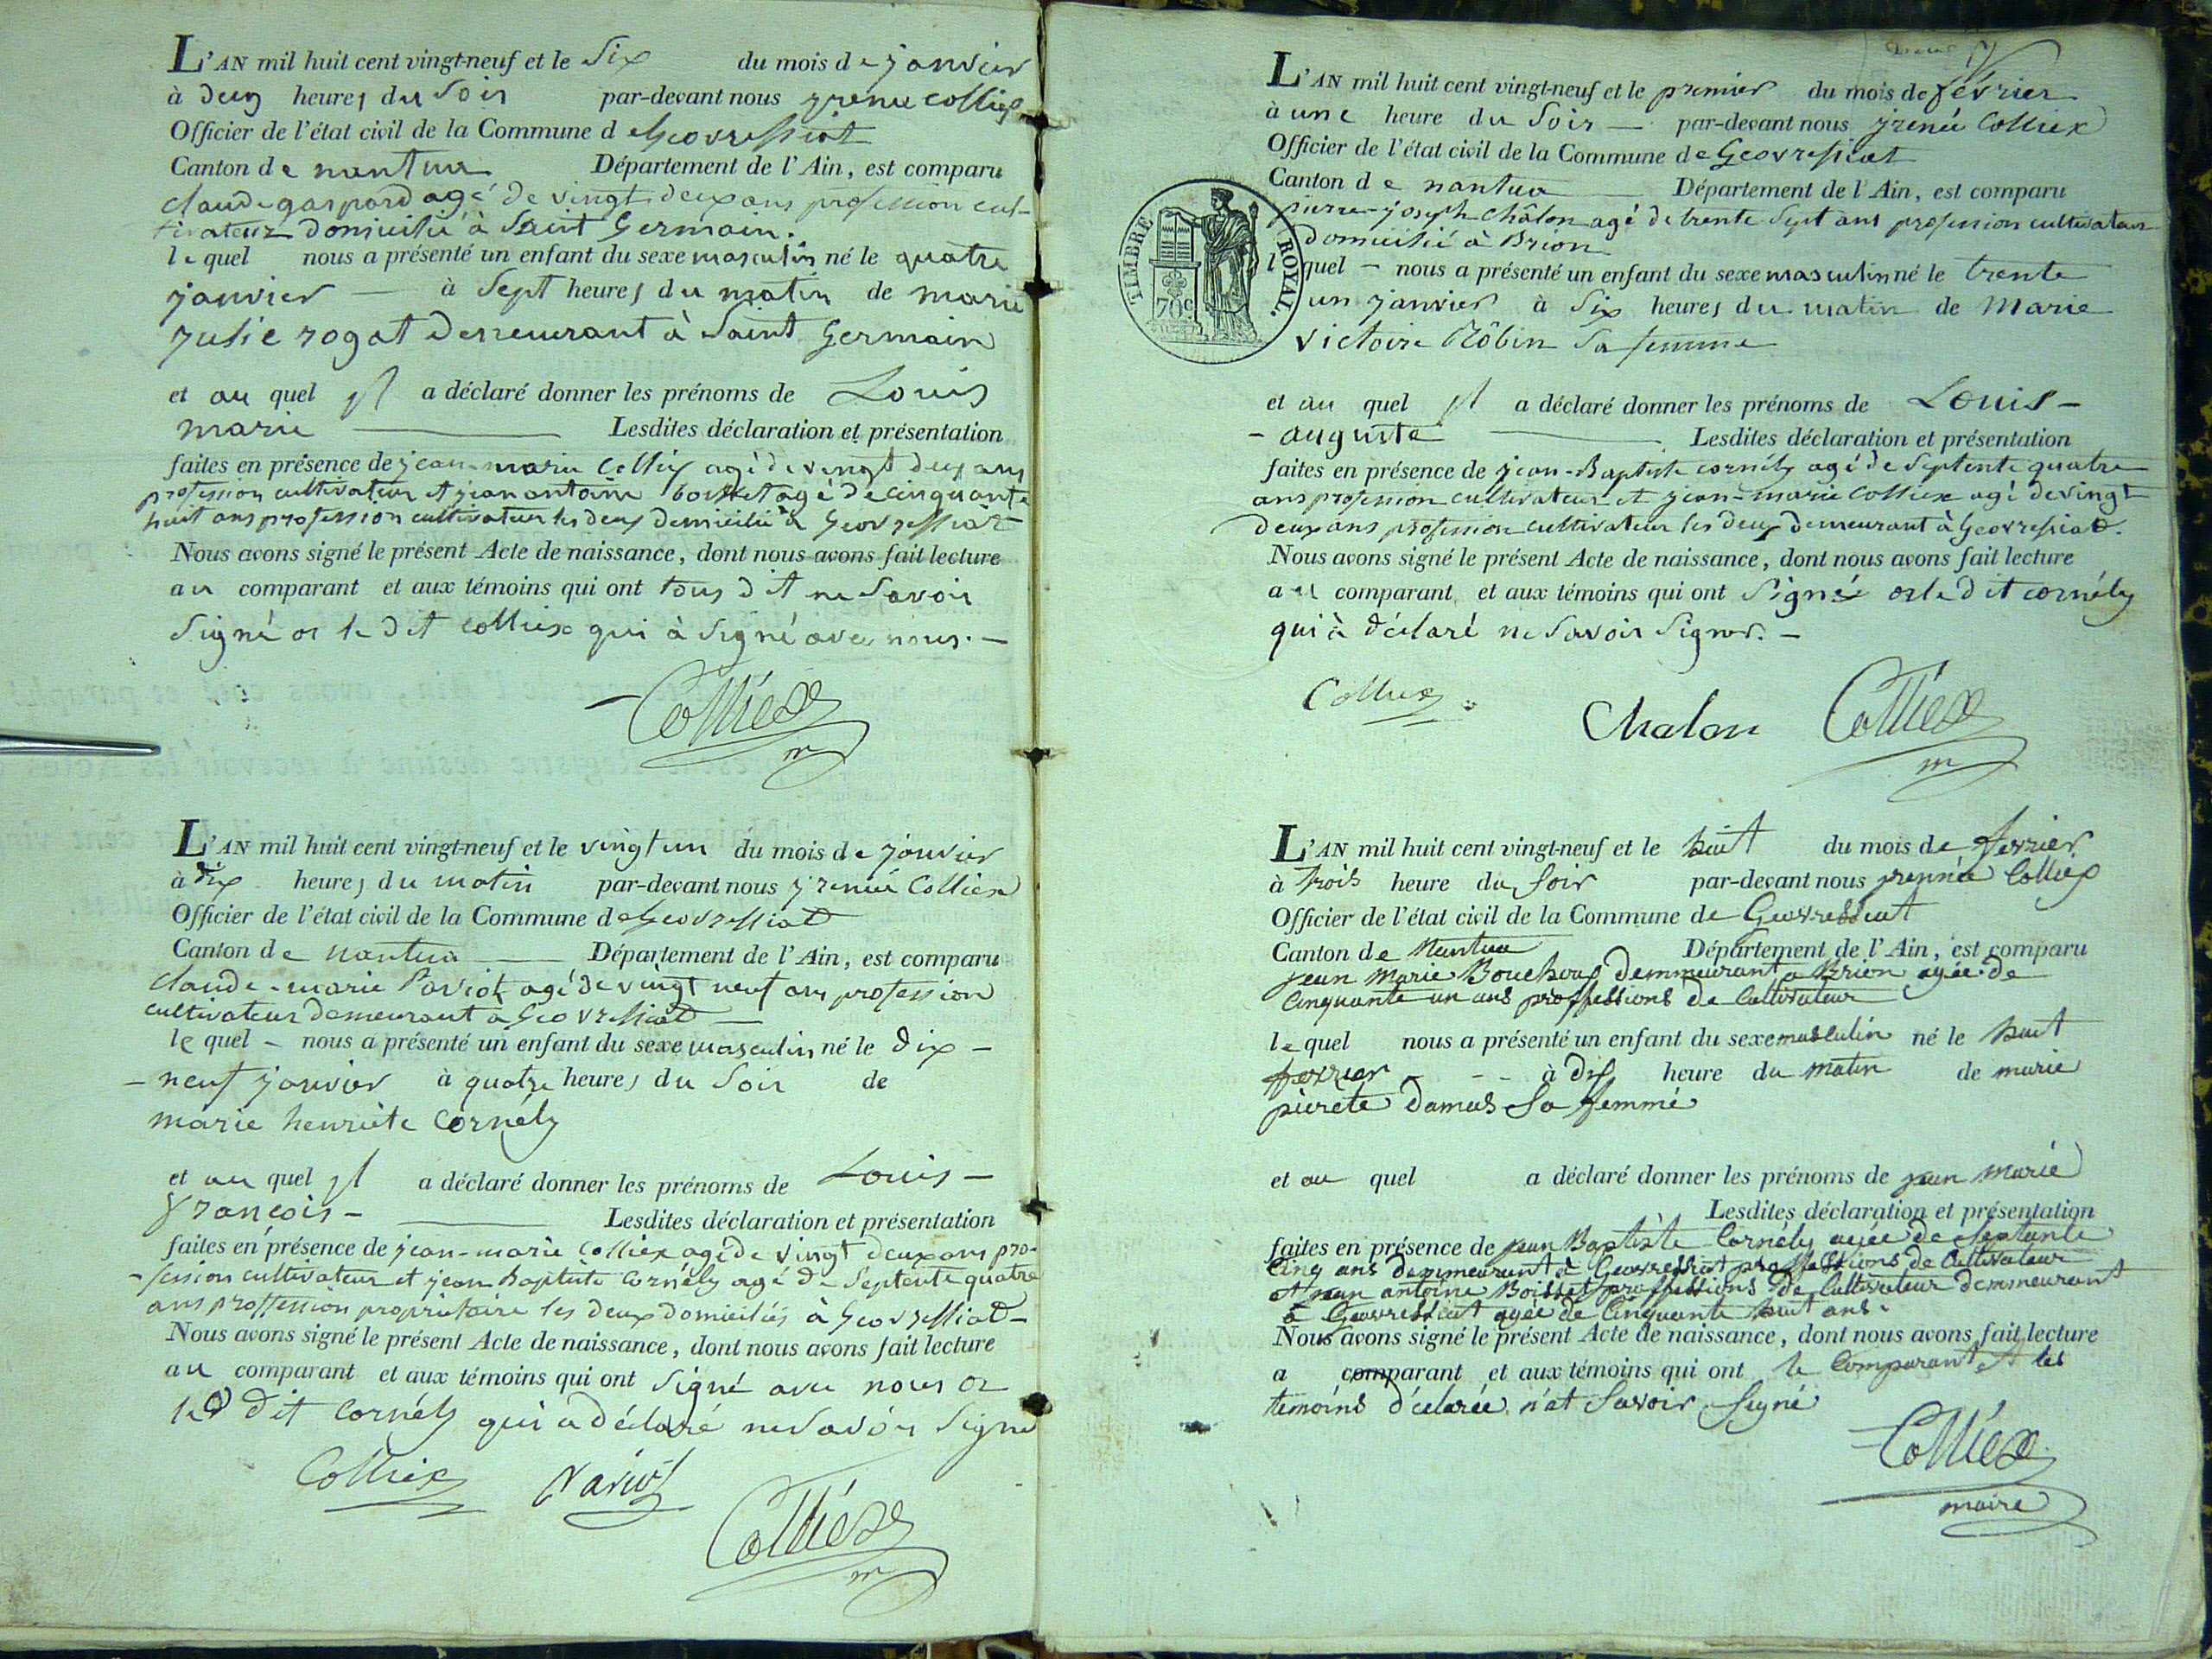 L'AN mil huit cent vingt-neuf et le Six du mois de janvier
à deux heures du Soir par-devant nous yrenée Colliex
Officier de l'état civil de la Commune d e Geovressiat
Canton de nantua Département de l'Ain, est comparu
claude gaspard agé de vingt deux ans profession cul-
tivateur domicilié à Saint Germain.
le quel nous a présenté un enfant du sexe masculin né le quatre
janvier — à Sept heures du matin de marie
julie rogat demeurant à Saint Germain
et au quel yl a déclaré donner les prénoms de Louis
marie Lesdites déclaration et présentation
faites en présence de jean-marie Colliex agé de vingt deux ans
profession cultivateur et jean antoine boisset agé de cinquante
huit ans profession cultivateur les deux domicilié à Geovressiat
Nous avons signé le présent Acte de naissance, dont nous avons fait lecture
au comparant et aux témoins qui ont tous dit ne Savoir
Signé or le dit colliex qui à Signé avec nous. —
Colliex
m
L'AN mil huit cent vingt-neuf et le vingt un du mois de janvier
à dix heures du matin par-devant nous yrenée Colliex
Officier de l'état civil de la Commune de Geovressiat
Canton de nantua Département de l'Ain, est comparu
claude-marie Pariot agé de vingt neuf ans profession
cultivateur demeurant à Geovressiat —
le quel – nous a présenté un enfant du sexe masculin né le dix –
– neuf janvier à quatre heures du Soir de
marie henriete Cornély
et au quel yl a déclaré donner les prénoms de Louis –
françois – Lesdites déclaration et présentation
faites en présence de jean-marie Colliex agé de vingt deux ans pro-
-fession cultivateur et jean Baptiste Cornély agé de Septente quatre
ans proffession propriétaire les deux domiciliés à Geovressiat –
Nous avons signé le présent Acte de naissance, dont nous avons fait lecture
au comparant et aux témoins qui ont Signé avec nous or
le dit Cornély qui a déclaré ne Savoir Signe
Colliex Pariot
Colliex
m
L'AN mil huit cent vingt-neuf et le premier du mois de février
à une heure du Soir — par-devant nous yrenée Colliex
Officier de l'état civil de la Commune de Geovressiat
Canton de nantua Département de l'Ain, est comparu
pierre-joseph châlon agé de trente Sept ans profession cultivateur
domicilié à Brion
lequel – nous a présenté un enfant du sexe masculin né le trente
un janvier à Six heures du matin de Marie
Victoire Rôbin Sa femme
TIMBRE ROYAL.
70c
et au quel yl a déclaré donner les prénoms de Louis –
– auguste Lesdites déclaration et présentation
faites en présence de jean-Baptiste cornély agé de Septente quatre
ans profession cultivateur et jean-marie colliex agé de vingt
deux ans profession cultivateur les deux demeurant à Geovressiat.
Nous avons signé le présent Acte de naissance, dont nous avons fait lecture
au comparant et aux témoins qui ont Signé or le dit cornély
qui à déclaré ne Savoir Signer. –
Colliex Chalon Colliex
m
L'AN mil huit cent vingt-neuf et le huit du mois de fevrier
à trois heure du soir par-devant nous yrennée Colliex
Officier de l'état civil de la Commune de Geovressiat
Canton de Nantua Département de l'Ain, est comparu
jean Marie Bouchoux demmeurant a Brion agée de
Cinquante un ans proffessions de Cultivateur
lequel nous a présenté un enfant du sexe masculin né le huit
fevrier - - - à dix heure du matin de marie
pierete damas Sa femme
et au quel a déclaré donner les prénoms de jean marie
Lesdites déclaration et présentation
faites en présence de jean Baptiste Cornély agée de Septante
Cinq ans demmeurant a Geovressiat proffessions de Cultivateur
et jean antoine Boisset proffessions de Cultivateur demmeurant
a Geovressiat agée de Cinquante huit ans.
Nous avons signé le présent Acte de naissance, dont nous avons fait lecture
a comparant et aux témoins qui ont le Comparant et les
temoins déclarée n'at Savoir Signé
Colliex
maire